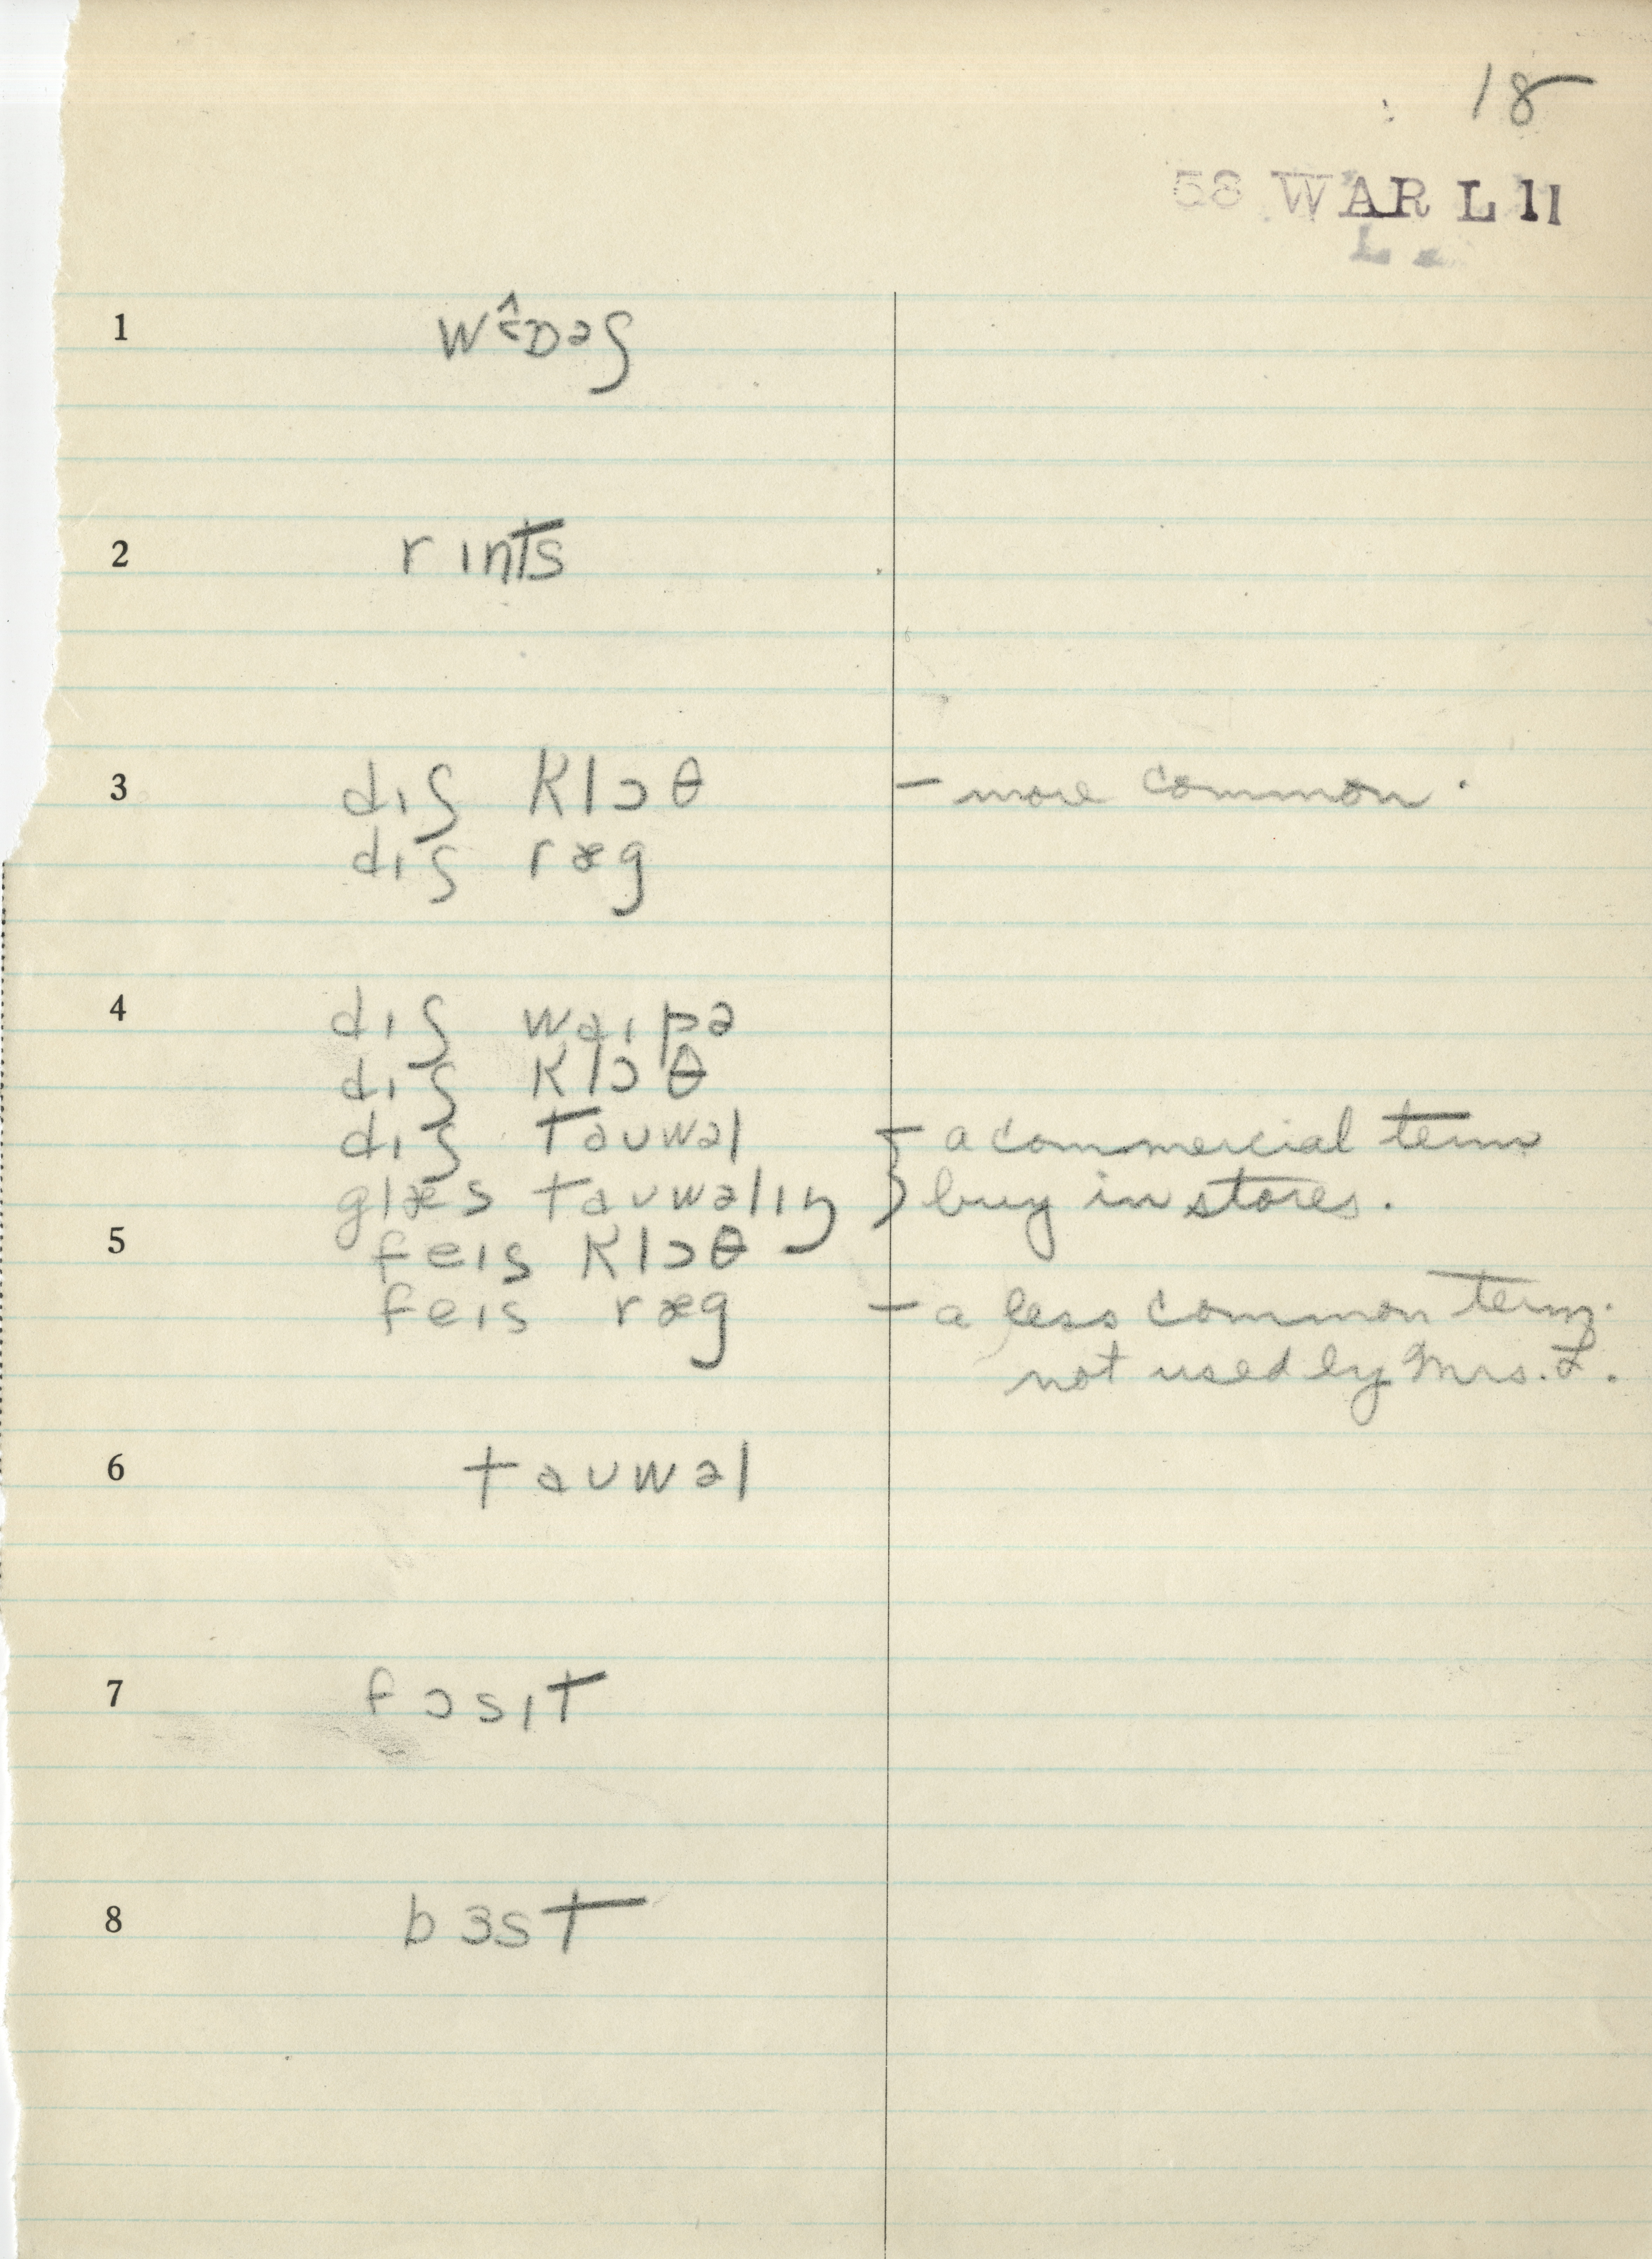 18
58 WAR L 11
L
1 wɒəʃ
2 rɪnts
3 dɪʃ klɔθ – more common.
dɪʃ ræg
4 dɪʃ waɪpə
dɪʃ klɔθ
dɪʃ tauwəl } – a commercial term
glæs tauwəlɪŋ } buy in stores.
5 feɪs klɔθ
feɪs ræg – a less common term.
not used by Mrs. L.
6 tauwəl
7 fɔsɪt
8 bɜst